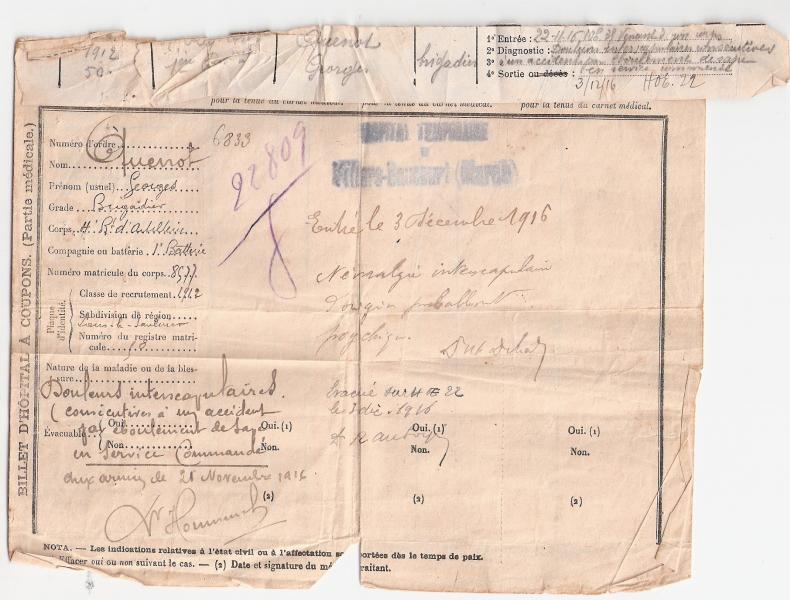 1912
50
Quenot
Georges
brigadier
1º Entrée : 22-11-16
2º Diagnostic : Douleurs interscapulaires consécutives
3º à un accident par éboulement de sape
4º Sortie ou décès : en service commandé
3/12/16 HOE. 22
pour la tenue du carnet médical. pour la tenue du carnet médical. pour la tenue du carnet médical.
BILLET D'HÔPITAL A COUPONS. (Partie médicale.)
Numéro d'ordre
6833
22809
HOPITAL TEMPORAIRE
Nom Quenot
Prénom (usuel) Georges
Grade Brigadier
Corps 4e Rt d'Artillerie
Compagnie ou batterie 1e Batterie
Numéro matricule du corps 8577
Plaque d'identité.
Classe de recrutement 1912
Subdivision de région
Lons-le-Saunier
Numéro du registre matri-
cule 50
Entré le 3 décembre 1916
Névralgie interscapulaire
d'origine probablement
psychique
Nature de la maladie ou de la bles-
sure
Douleurs interscapulaires
(consécutives à un accident
par éboulement de sape
en Service Commandé
aux armées le 21 Novembre 1916
Évacuable
Oui.
Non.
Oui. (1)
Non.
(2)
Evacué sur H O E 22
le 3 déc. 1916
Oui. (1)
Non.
(2)
Oui. (1)
Non.
(2)
NOTA. — Les indications relatives à l'état civil ou à l'affectation so portées dès le temps de paix.
Effacer oui ou non suivant le cas. — (2) Date et signature du mé traitant.